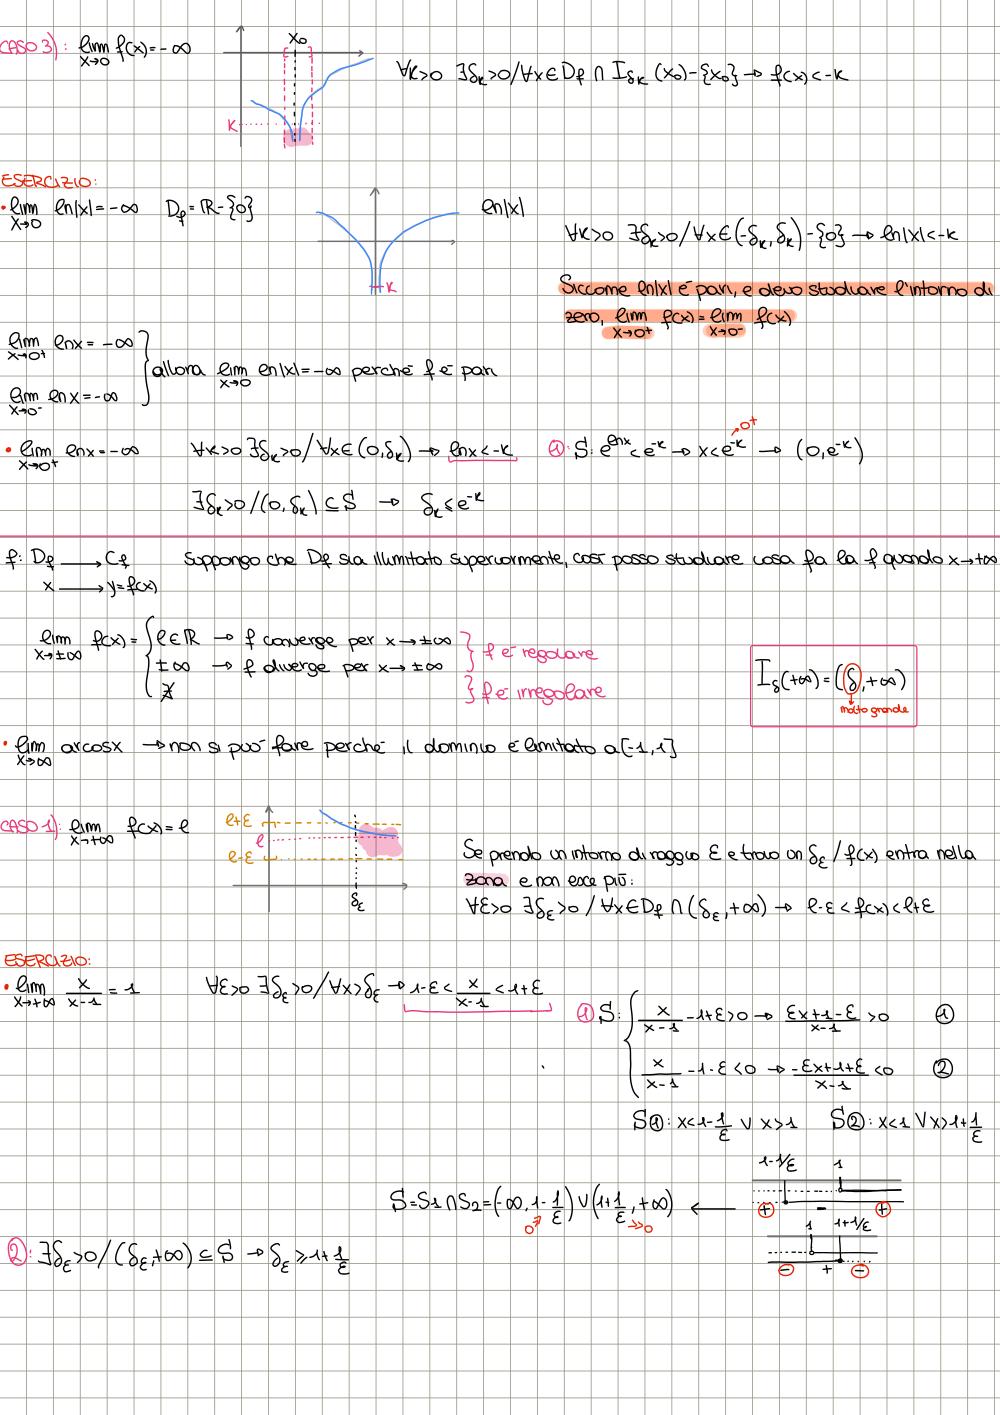 CASO 3): lim x→0 f(x)=-∞
x₀
K
∀K>0 ∃δₖ>0/∀x∈Df ∩ Iδₖ(x₀)-{x₀} → f(x)<-K
ESERCIZIO:
• lim x→0 ln|x|=-∞ Df=ℝ-{0}
ln|x|
-K
∀K>0 ∃δₖ>0/∀x∈(-δₖ,δₖ)-{0} → ln|x|<-K
Siccome ln|x| é pari, e devo studiare l'intorno di
zero, lim x→0⁺ f(x)=lim x→0⁻ f(x)
lim x→0⁺ lnx=-∞
allora lim x→0 ln|x|=-∞ perché f é pari
lim x→0⁻ lnx=-∞
• lim x→0⁺ lnx=-∞ ∀K>0 ∃δₖ>0/∀x∈(0,δₖ) → lnx<-K ①: S: e^lnx<e^-K → x<e^-K → (0,e^-K)
→0⁺
∃δₖ>0/(0,δₖ)⊆S → δₖ≤e^-K
f: Df → Cf Suppongo che Df sia illimitato superiormente, così posso studiare cosa fa la f quando x→+∞
x → y=f(x)
lim x→±∞ f(x)= { l∈ℝ → f converge per x→±∞
±∞ → f diverge per x→±∞ } f é regolare
∄ } f é irregolare
Iδ(+∞)=(δ,+∞)
molto grande
• lim x→∞ arcosx → non si può fare perché il dominio é limitato a [-1,1]
CASO 1): lim x→+∞ f(x)=l
l+ε
l
l-ε
δε
Se prendo un intorno di raggio ε e trovo un δε/f(x) entra nella
zona e non esce più:
∀ε>0 ∃δε>0/∀x∈Df ∩(δε,+∞) → l-ε<f(x)<l+ε
ESERCIZIO:
• lim x→+∞ x/(x-1)=1 ∀ε>0 ∃δε>0/∀x>δε → 1-ε<x/(x-1)<1+ε
① S: { x/(x-1) -1+ε>0 → (εx+1-ε)/(x-1)>0 ①
x/(x-1) -1-ε<0 → (-εx+1+ε)/(x-1)<0 ②
S①: x<1-1/ε ∨ x>1 S②: x<1 ∨ x>1+1/ε
1-1/ε 1
+ - +
S=S1∩S2=(-∞,1-1/ε)∪(1+1/ε,+∞) ←
0 >>0
1 1+1/ε
- + -
②: ∃δε>0/(δε,+∞)⊆S → δε≥1+1/ε